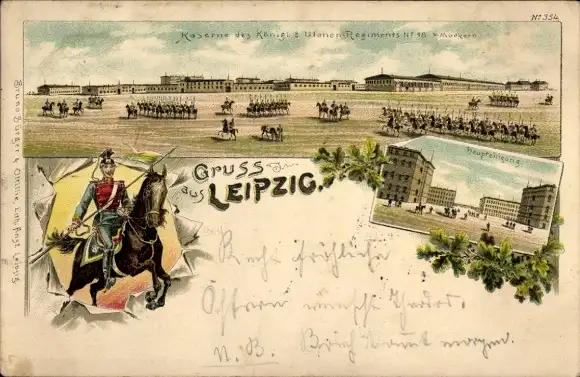 No. 354
Kaserne des Königl. S. Ulanen-Regiments No. 18. Möckern.
Haupteingang.
Gruss
aus LEIPZIG.
Recht fröhliche
Ostern wünscht Theodor.
N. B. Brief kommt morgen.
Bruno Bürger & Ottillie, Lith. Anst. Leipzig